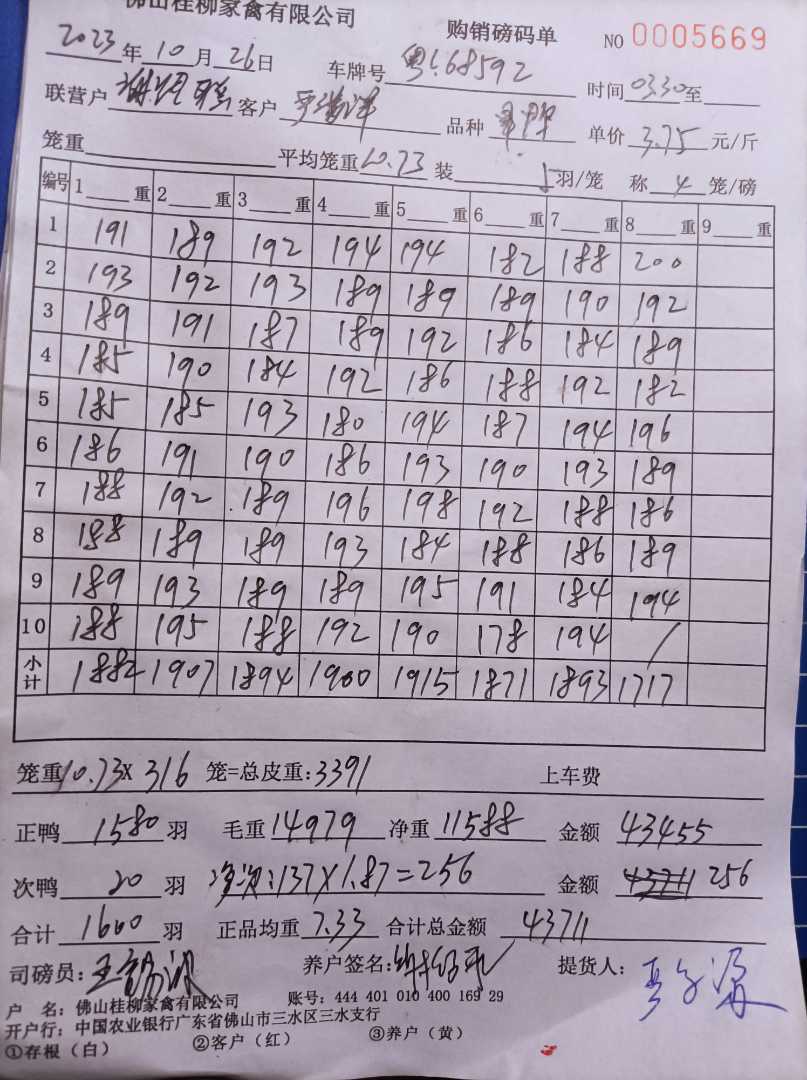 佛山桂柳家禽有限公司
购销磅码单 NO 0005669
2023年10月26日 车牌号 粤 68592 时间 0330 至
联营户 客户 品种 单价 3.75 元/斤
笼重 平均笼重 10.73 装 5 羽/笼 称 4 笼/磅
编号 1 重 2 重 3 重 4 重 5 重 6 重 7 重 8 重 9 重
1 191 189 192 194 194 182 188 200
2 193 192 193 189 189 189 190 192
3 189 191 187 189 192 186 184 189
4 185 190 184 192 186 188 192 182
5 185 185 193 180 194 187 194 196
6 186 191 190 186 193 190 193 189
7 188 192 189 196 198 192 188 186
8 188 189 189 193 184 188 186 189
9 189 193 189 189 195 191 184 194
10 188 195 188 192 190 178 194 /
小计 1882 1907 1894 1900 1915 1871 1893 1717
笼重 10.73 X 316 笼=总皮重:3391 上车费
正鸭 1580 羽 毛重 14979 净重 11588 金额 43455
次鸭 20 羽 净次:137X1.87=256 金额 256
合计 1600 羽 正品均重 7.33 合计总金额 43711
司磅员: 养户签名: 提货人:
户 名: 佛山桂柳家禽有限公司 账号: 444 401 010 400 169 29
开户行: 中国农业银行广东省佛山市三水区三水支行
①存根（白） ②客户（红） ③养户（黄）